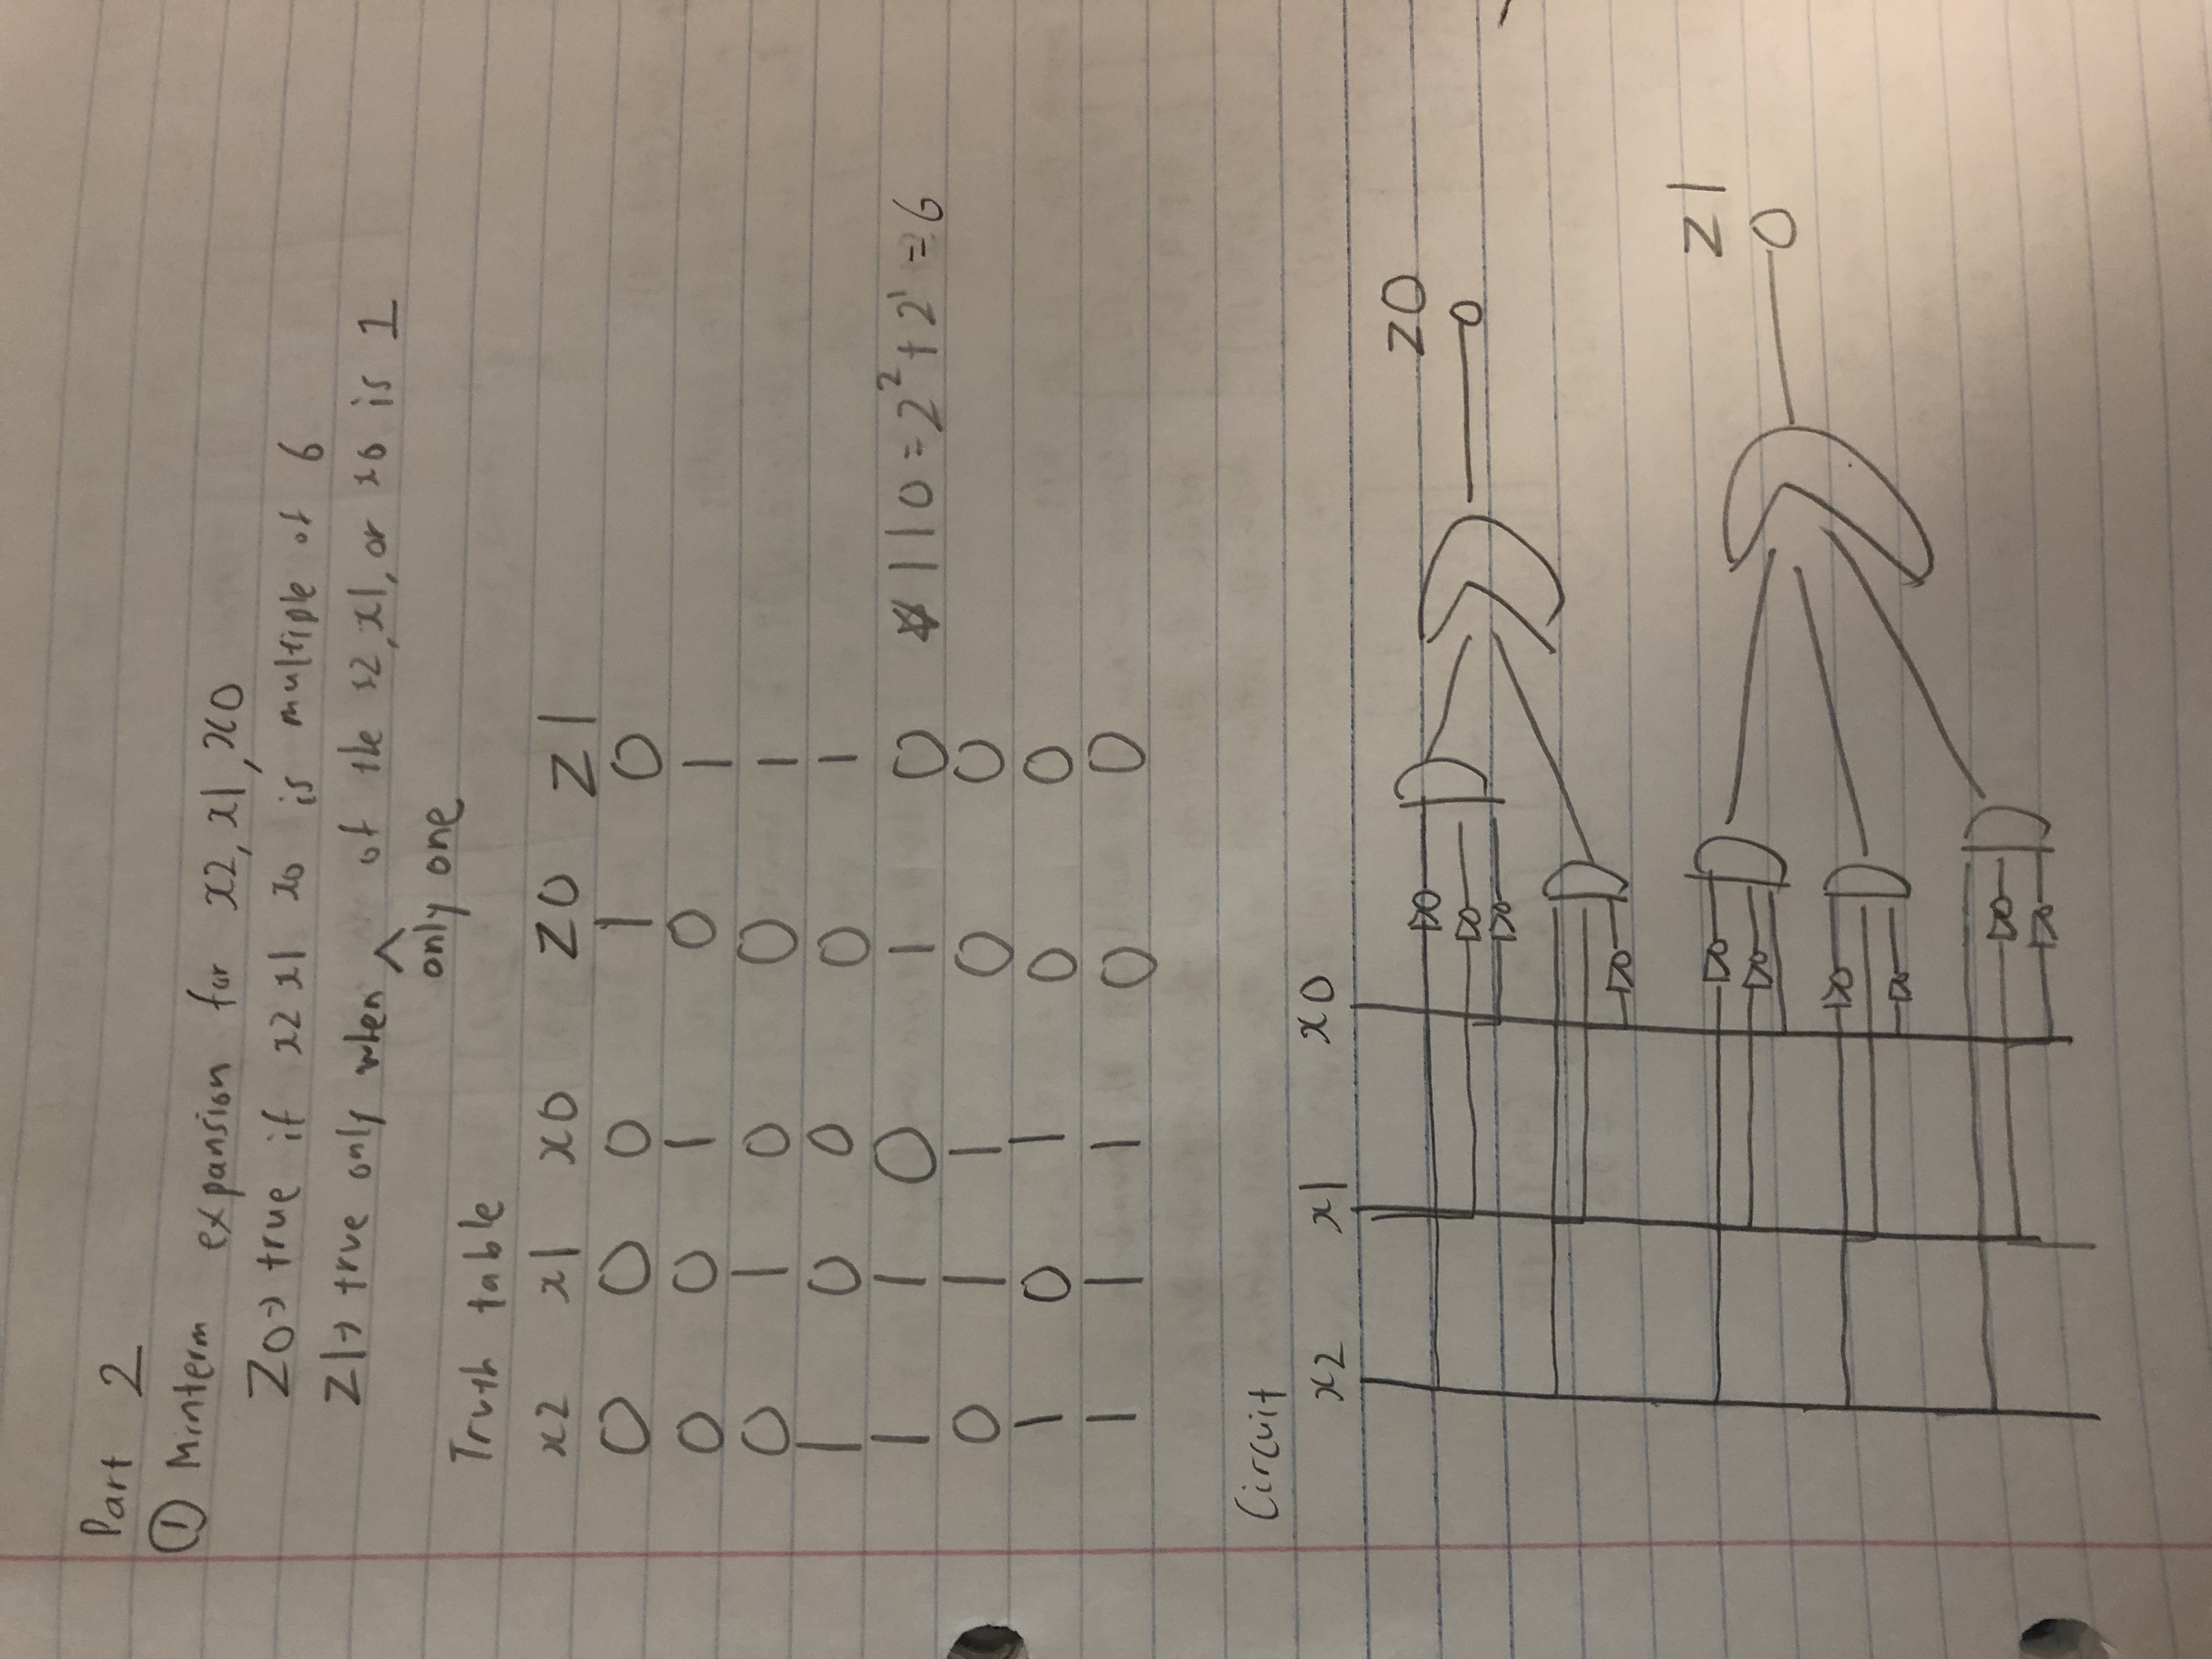 Part 2
① Minterm expansion for x2, x1, x0
Z0→ true if x2 x1 x0 is multiple of 6
Z1→ true only when ^ of the x2, x1, or x0 is 1
only one
Truth table
x2 x1 x0 Z0 Z1
0 0 0 1 0
0 0 1 0 1
0 1 0 0 1
1 0 0 0 1
1 1 0 1 0 * 110 = 2² + 2¹ = 6
0 1 1 0 0
1 0 1 0 0
1 1 1 0 0
Circuit
x2 x1 x0
Z0
Z1